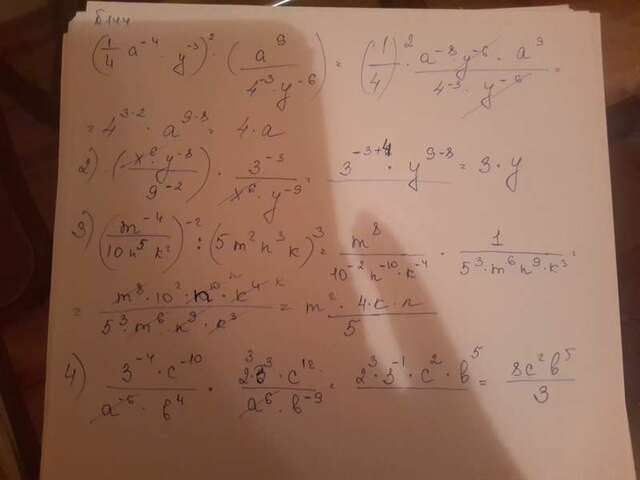 Б144
(1/4 a⁻⁴ · y⁻³)² · (a⁹ / 4⁻³ · y⁻⁶) = (1/4)² · a⁻⁸ · y⁻⁶ · a⁹ / 4⁻³ · y⁻⁶ =
= 4³⁻² · a⁹⁻⁸ = 4 · a
2) (-x⁶ · y⁻⁸ / 9⁻²) · 3⁻³ / x⁶ · y⁻⁹ = 3⁻³⁺⁴ · y⁹⁻⁸ = 3 · y
3) (m⁻⁴ / 10n⁵k²)⁻² : (5m²n³k)³ = m⁸ / 10⁻² n⁻¹⁰ · k⁻⁴ · 1 / 5³ · m⁶ n⁹ · k³ =
= m⁸ · 10² · n¹⁰ · k⁴ / 5³ · m⁶ · n⁹ · k³ = m² · 4 · k · n / 5
4) 3⁻⁴ · c⁻¹⁰ / a⁻⁶ · b⁴ · 2³ 3³ · c¹² / a⁶ · b⁻⁹ = 2³ · 3⁻¹ · c² · b⁵ = 8c²b⁵ / 3